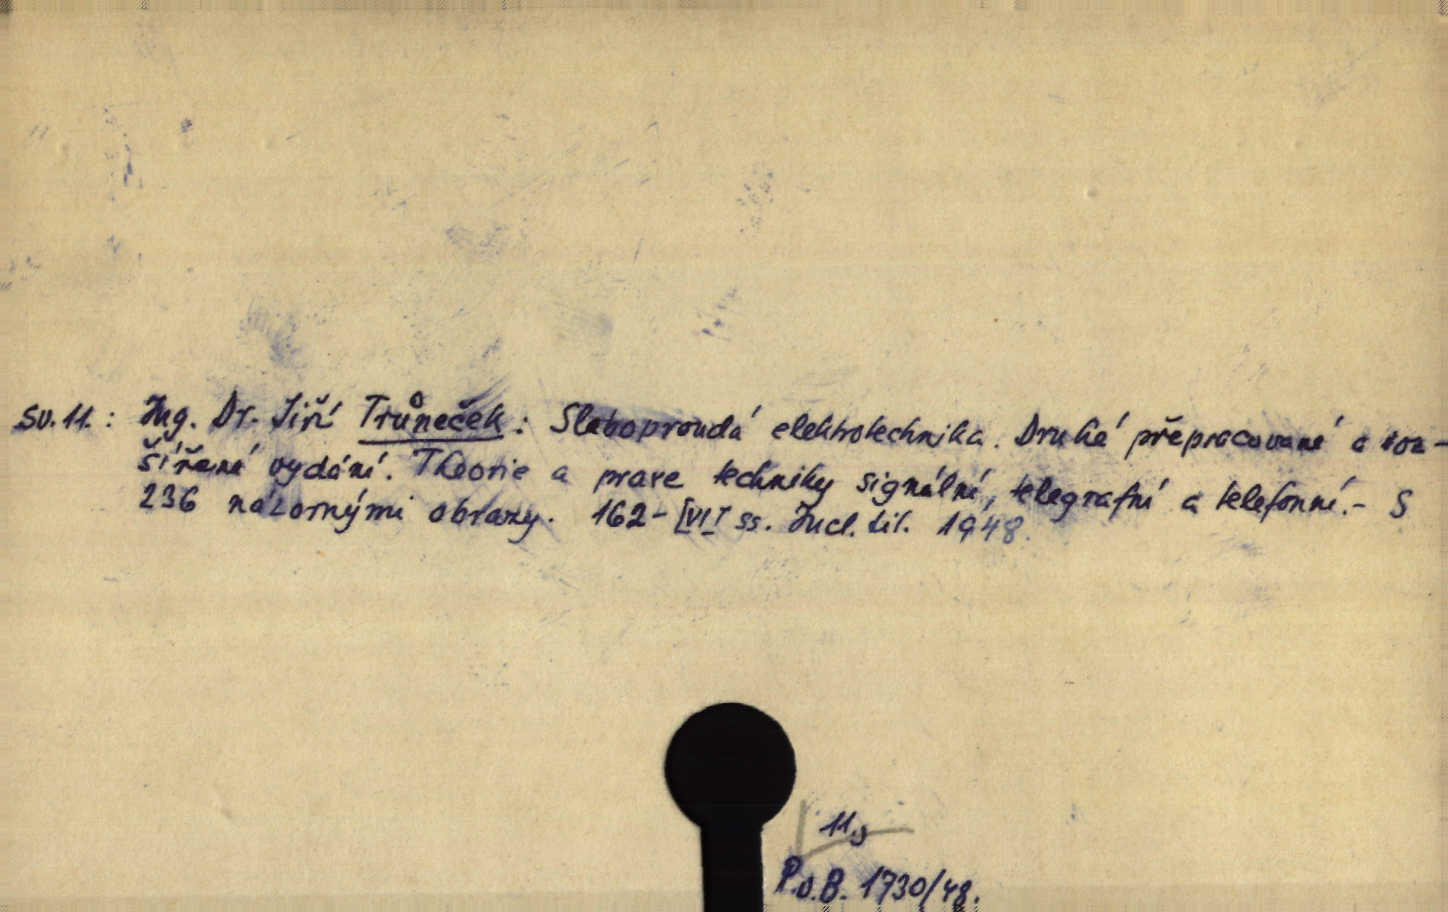 Sv. 11. : Ing. Dr. Jiří Trůneček: Slaboproudá elektrotechnika. Druhé přepracované a roz-
šířené vydání. Theorie a praxe techniky signální, telegrafní a telefonní. - S
236 názornými obrazy. 162 - [VI] ss. Incl. tit. 1948.
11.
P.v.B. 1730/48.